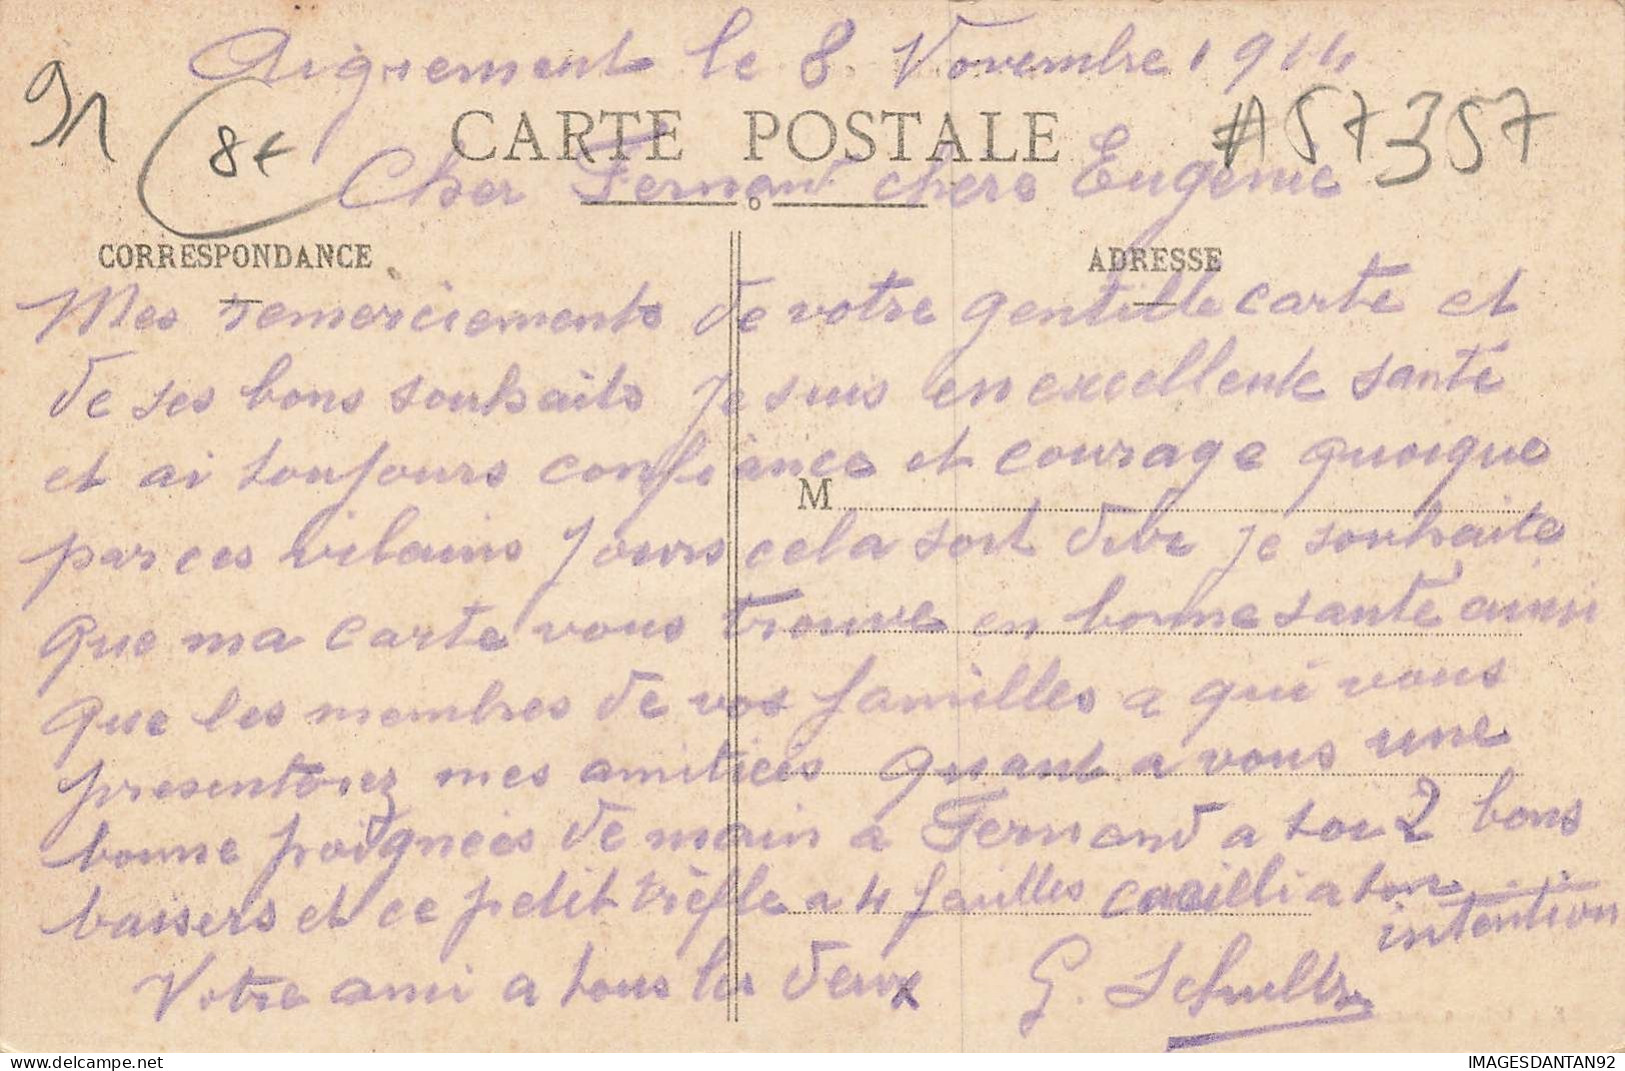 Aigrement le 8 Novembre 1914
91
8€
CARTE POSTALE
#57357
Cher Fernand chere Eugenie
CORRESPONDANCE
ADRESSE
Mes remerciements de votre gentille carte et
de ses bons souhaits Je suis en excellente santé
et ai toujours confiance et courage quoique
M
par ces vilains jours cela soit dur je souhaite
que ma carte vous trouve en bonne santé ainsi
que les membres de vos familles a qui vous
presenterez mes amitiées quant a vous une
bonne poignées de main a Fernand a toi 2 bons
baisers et ce petit trèfle a 4 feuilles cueilli a ton
intention
Votre ami a tous les deux G. Schultz
IMAGESDANTAN92